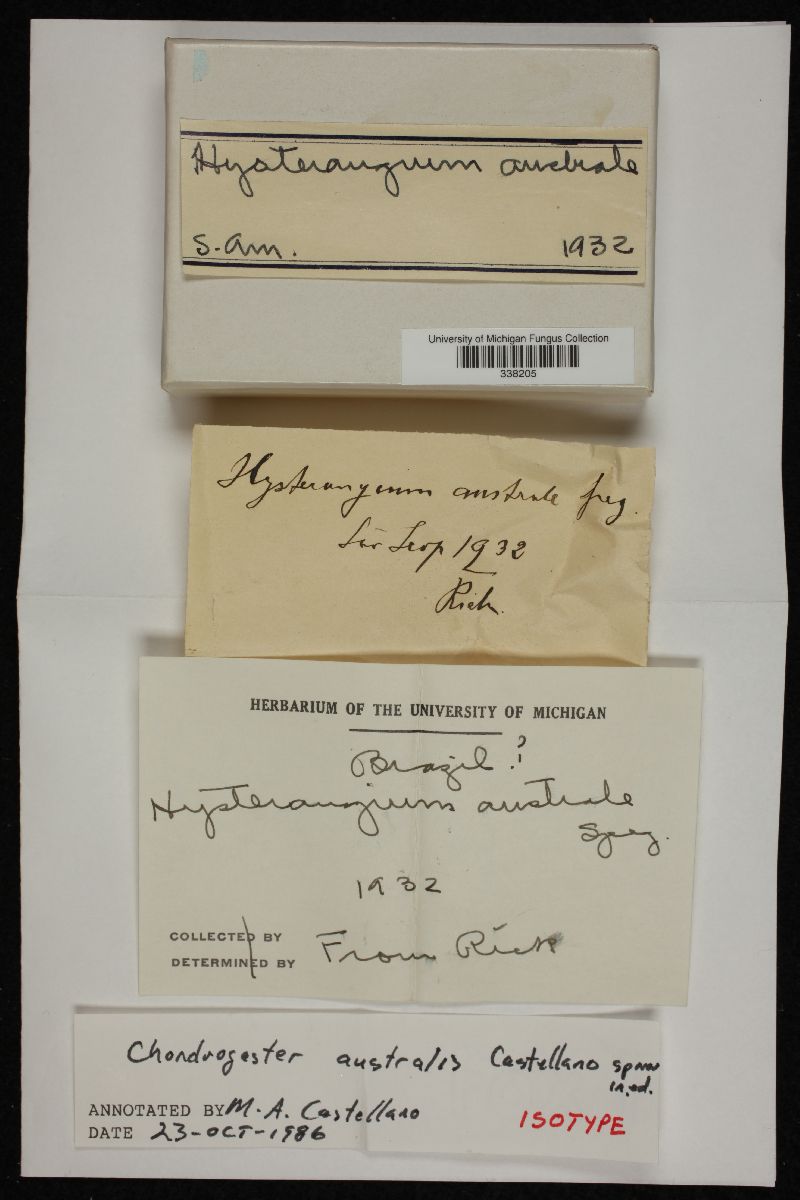 Hysterangium australe
S. Am. 1932
University of Michigan Fungus Collection
338205
Hysterangium australe Speg.
São Leop 1932
Rick.
HERBARIUM OF THE UNIVERSITY OF MICHIGAN
Brazil ?
Hysterangium australe
Speg.
1932
COLLECTED BY
DETERMINED BY
From Rick
Chondrogaster australis Castellano sp nov
in ed.
ANNOTATED BY M. A. Castellano
DATE 23-OCT-1986
ISOTYPE